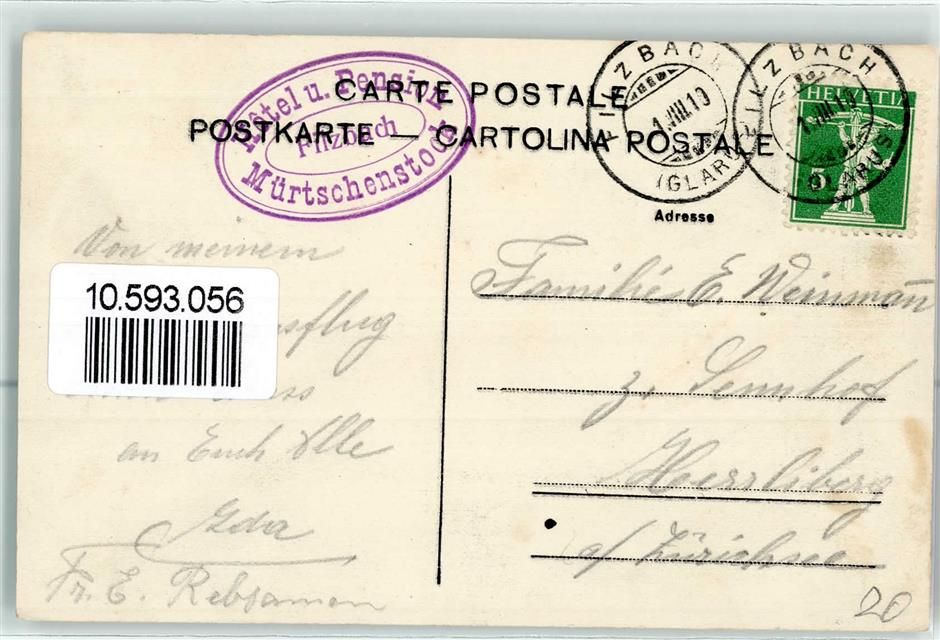 CARTE POSTALE
POSTKARTE — CARTOLINA POSTALE
Hotel u. Pension
Filzbach
Mürtschenstock
FILZBACH
1.VIII.10
(GLARUS)
FILZBACH
1.VIII.10
(GLARUS)
HELVETIA
5
Adresse
Von meinem
10.593.056
sflug
ss
an Euch Alle
Ida
Fr. E. Rebsamen
Familie E. Weinmann
z. Sennhof
Herrliberg
a/ Zürichsee
20